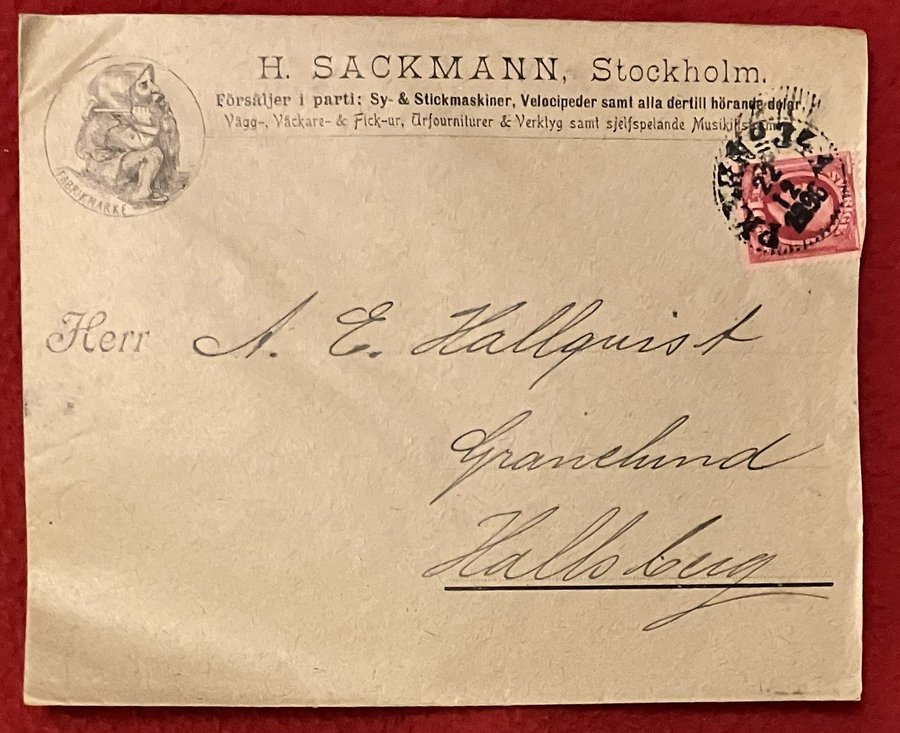 H. SACKMANN, Stockholm.
Försäljer i parti: Sy- & Stickmaskiner, Velocipeder samt alla dertill hörande delar.
Vägg-, Väckare- & Fick-ur, Urfourniturer & Verklyg samt sjelfspelande
FABRIKMÄRKE
22
12
SVERIGE
Herr A. E. Hallquist
Granelund
Hallsberg